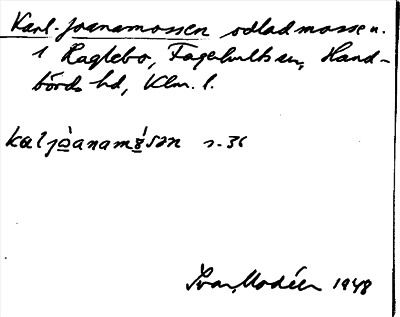 Karl-Joanamossen odlad mosse n.
i Raglebo, Fagerhults sn, Hand-
börds hd, Klm. l.
kaljòanamòsən s. 36
Ivar Modéer 1948